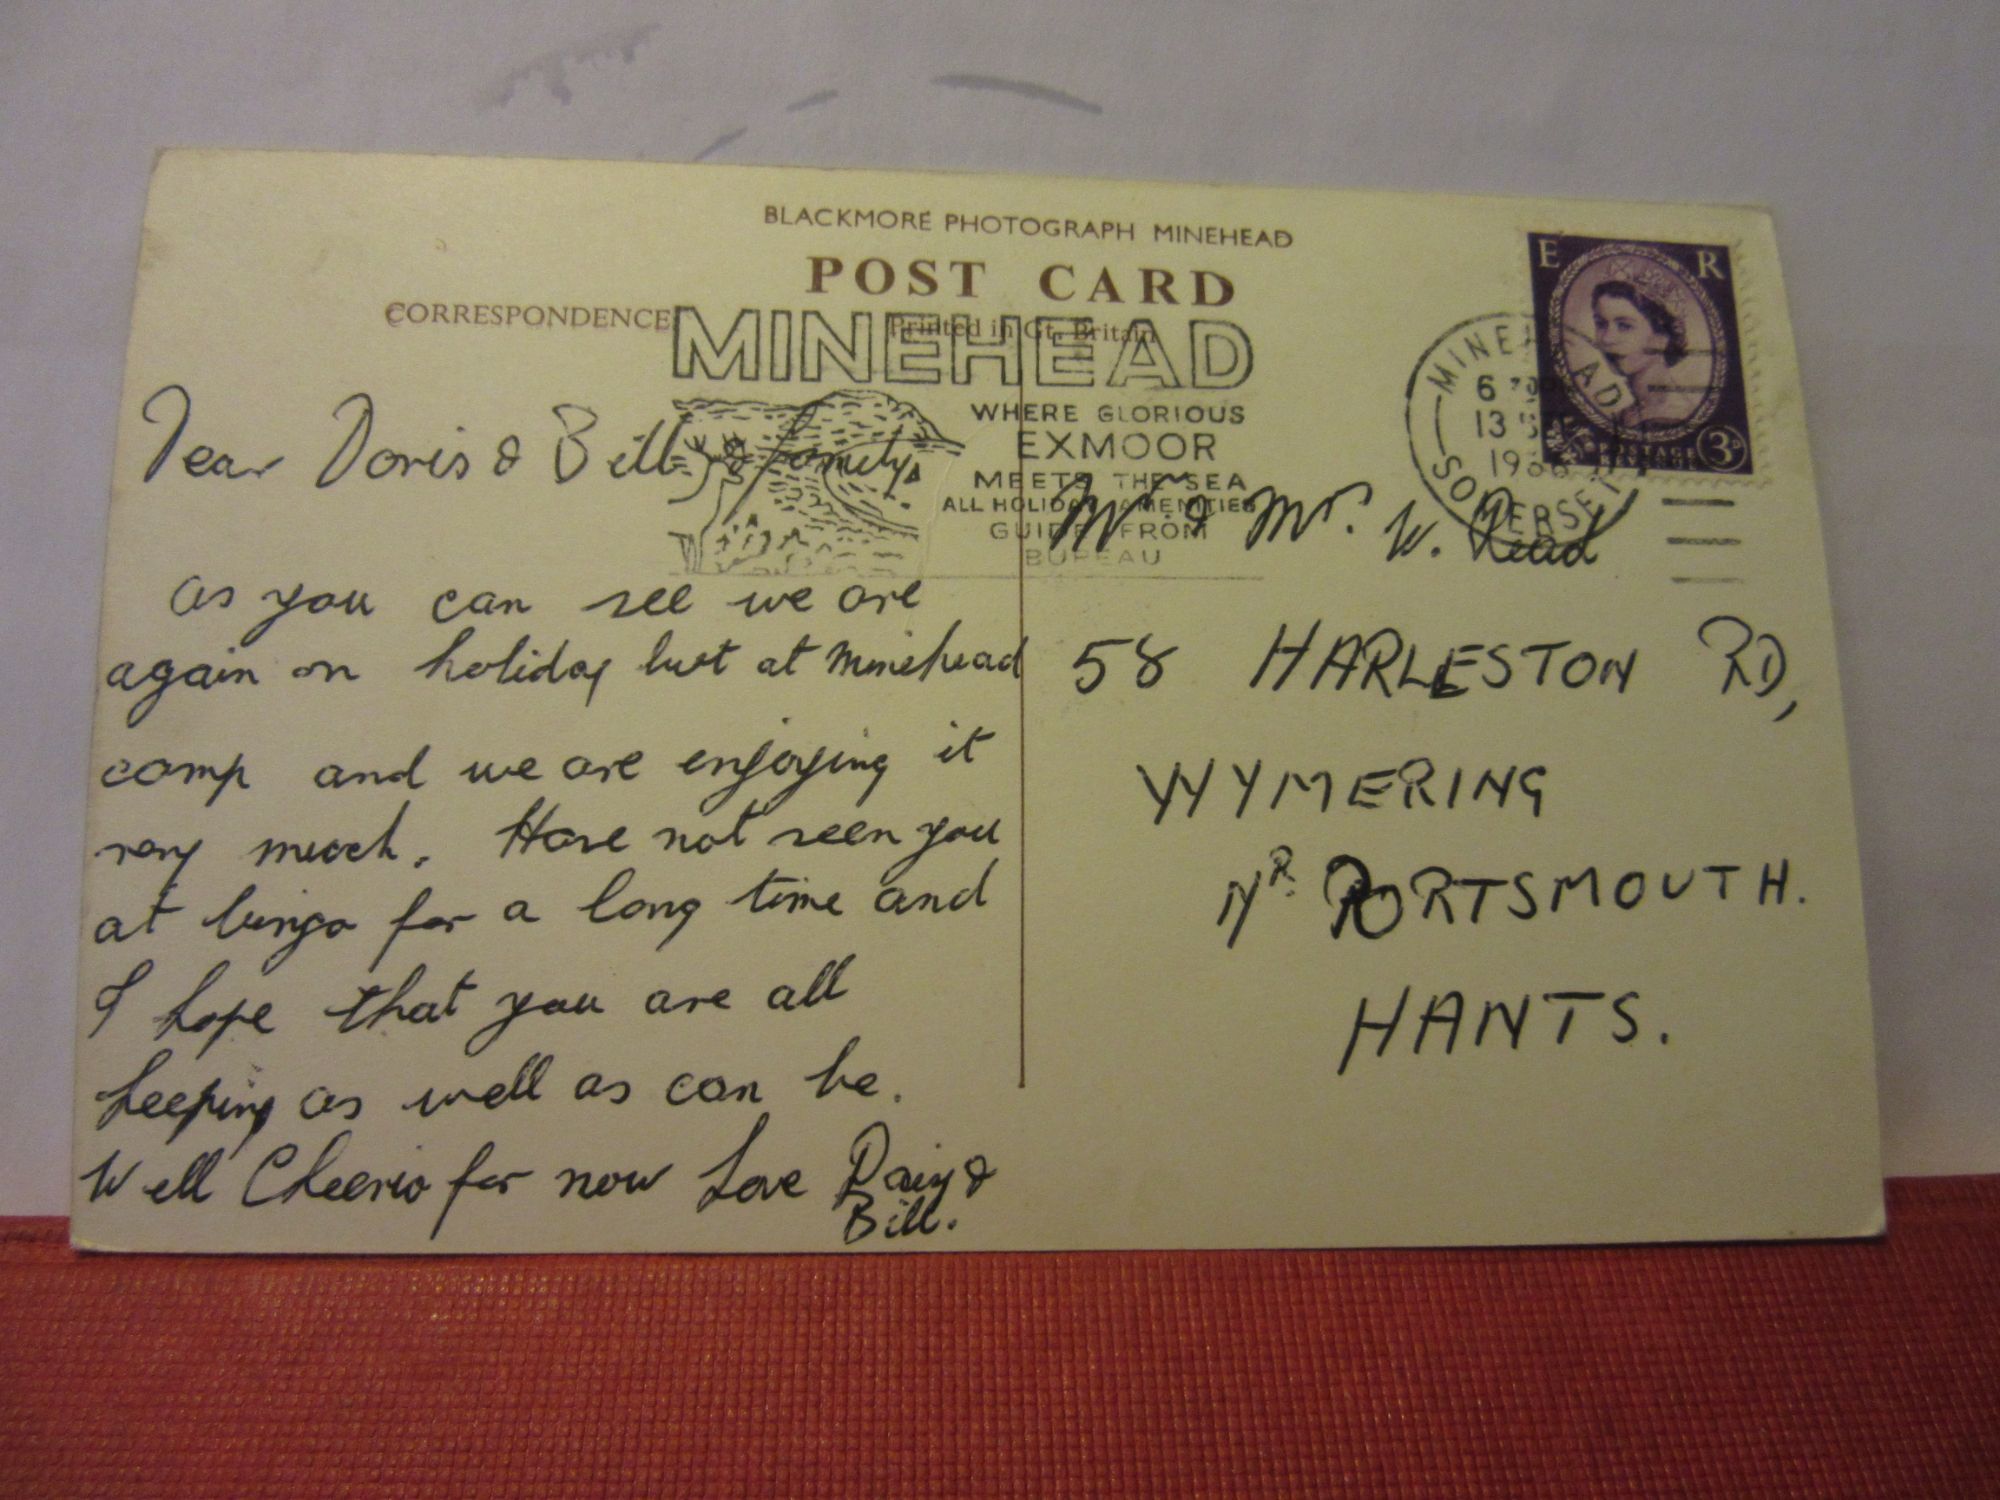 BLACKMORE PHOTOGRAPH MINEHEAD
POST CARD
CORRESPONDENCE
Printed in Gt. Britain
MINEHEAD
WHERE GLORIOUS
EXMOOR
MEETS THE SEA
ALL HOLIDAY AMENITIES
GUIDE FROM
BUREAU
E R
POSTAGE
3D
MINEHEAD
6
13
SOMERSET
Dear Doris & Bill & family,
as you can see we are
again on holiday but at Minehead
camp and we are enjoying it
very much. Have not seen you
at bingo for a long time and
I hope that you are all
keeping as well as can be.
Well Cheerio for now Love Daisy &
Bill.
Mr. & Mrs. W. Read
58 HARLESTON RD,
WYMERING
NR. PORTSMOUTH.
HANTS.